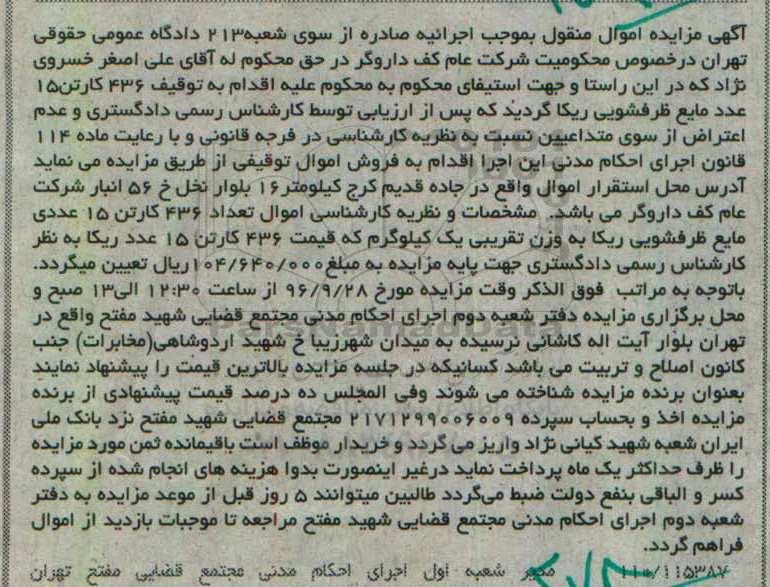 آگهی مزایده اموال منقول بموجب اجرائیه صادره از سوی شعبه۲۱۳ دادگاه عمومی حقوقی
تهران درخصوص محکومیت شرکت عام کف داروگر در حق محکوم له آقای علی اصغر خسروی
نژاد که در این راستا و جهت استیفای محکوم به محکوم علیه اقدام به توقیف ۴۳۶ کارتن۱۵
عدد مایع ظرفشویی ریکا گردید که پس از ارزیابی توسط کارشناس رسمی دادگستری و عدم
اعتراض از سوی متداعیین نسبت به نظریه کارشناسی در فرجه قانونی و با رعایت ماده ۱۱۴
قانون اجرای احکام مدنی این اجرا اقدام به فروش اموال توقیفی از طریق مزایده می نماید
آدرس محل استقرار اموال واقع در جاده قدیم کرج کیلومتر۱۶ بلوار نخل خ ۵۶ انبار شرکت
عام کف داروگر می باشد. مشخصات و نظریه کارشناسی اموال تعداد ۴۳۶ کارتن ۱۵ عددی
مایع ظرفشویی ریکا به وزن تقریبی یک کیلوگرم که قیمت ۴۳۶ کارتن ۱۵ عدد ریکا به نظر
کارشناس رسمی دادگستری جهت پایه مزایده به مبلغ۱۰۴/۶۴۰/۰۰۰ریال تعیین میگردد.
باتوجه به مراتب فوق الذکر وقت مزایده مورخ ۹۶/۹/۲۸ از ساعت ۱۲:۳۰ الی۱۳ صبح و
محل برگزاری مزایده دفتر شعبه دوم اجرای احکام مدنی مجتمع قضایی شهید مفتح واقع در
تهران بلوار آیت اله کاشانی نرسیده به میدان شهرزیبا خ شهید اردوشاهی(مخابرات) جنب
کانون اصلاح و تربیت می باشد کسانیکه در جلسه مزایده بالاترین قیمت را پیشنهاد نمایند
بعنوان برنده مزایده شناخته می شوند وفی المجلس ده درصد قیمت پیشنهادی از برنده
مزایده اخذ و بحساب سپرده ۲۱۷۱۲۹۹۰۰۶۰۰۹ مجتمع قضایی شهید مفتح نزد بانک ملی
ایران شعبه شهید کیانی نژاد واریز می گردد و خریدار موظف است باقیمانده ثمن مورد مزایده
را ظرف حداکثر یک ماه پرداخت نماید درغیر اینصورت بدوا هزینه های انجام شده از سپرده
کسر و الباقی بنفع دولت ضبط می‌گردد طالبین میتوانند ۵ روز قبل از موعد مزایده به دفتر
شعبه دوم اجرای احکام مدنی مجتمع قضایی شهید مفتح مراجعه تا موجبات بازدید از اموال
فراهم گردد.
۱۱۰/۱۱۵۳۸۷ مدیر شعبه اول اجرای احکام مدنی مجتمع قضایی مفتح تهران
ParsNamadData